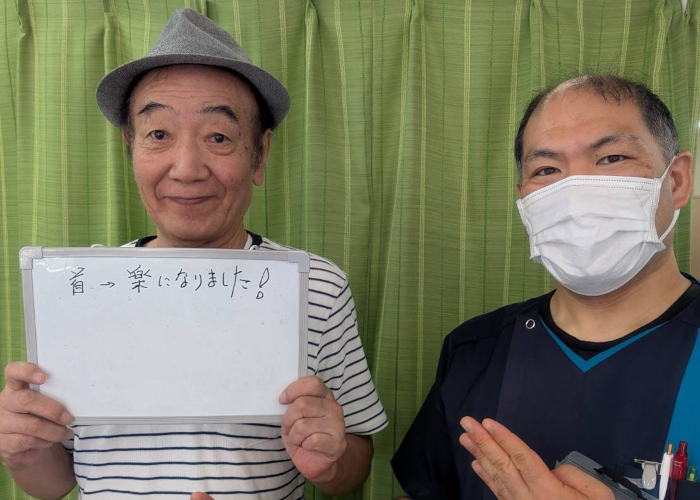 首→楽になりました!